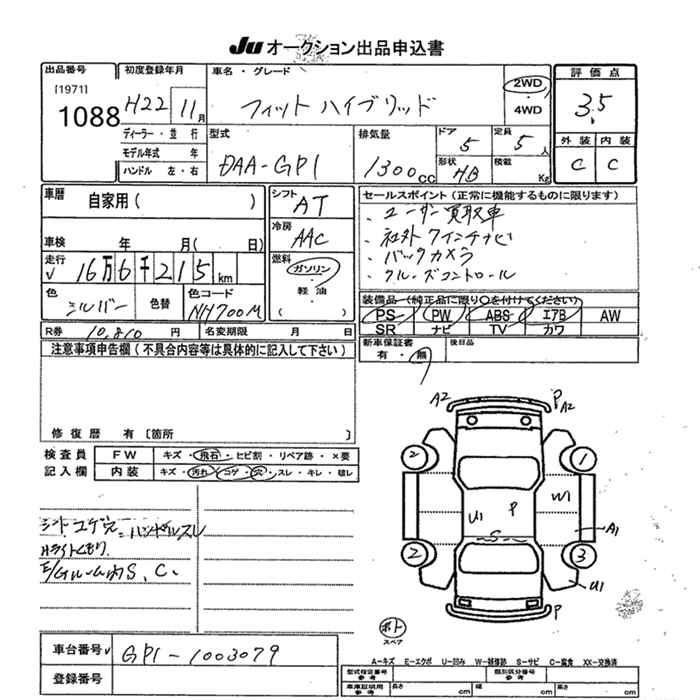 JU オークション出品申込書
出品番号
[1971]
1088
初度登録年月
H22 11月
ディーラー・並行
モデル年式 年
ハンドル 左・右
車名・グレード
フィット ハイブリッド
2WD
4WD
評価点
3.5
外装 内装
C C
型式
DAA-GP1
排気量
1300cc
ドア
5
定員
5人
形状
HB
積載
Kg
車歴
自家用( )
車検 年 月( 日)
走行
√ 16万6千215km
色
シルバー
色替
色コード
NH700M
シフト
AT
冷房
AAC
燃料
ガソリン
軽油
( )
セールスポイント(正常に機能するものに限ります)
・ユーザー買取車
・社外7インチナビ
・バックカメラ
・クルーズコントロール
装備品(純正品に限り○を付けてください)
PS PW ABS エアB AW
SR ナビ TV カワ
新車保証書
有・無
後日品
R券 10,810円
名変期限 月 日
注意事項申告欄(不具合内容等は具体的に記入して下さい)
修復歴 有 〔箇所 〕
検査員
記入欄
FW キズ・飛石・ヒビ割・リペア跡・×要
内装 キズ・汚れ・コゲ・穴・スレ・キレ・破レ
シートコゲ穴 ハンドルスレ
Hライトくもり
E/Gルーム内S、C、
A2
P
A2
2
1
W1
U1
P
A1
S
2
3
U1
P
ポト
スペア
車台番号√
GP1-1003079
登録番号
A-キズ E-エクボ U-凹み W-補修跡 S-サビ C-腐食 XX-交換済
型式指定番号
参考
類別区分番号
参考
車庫証明用
参考
長さ cm
幅 cm
高さ cm